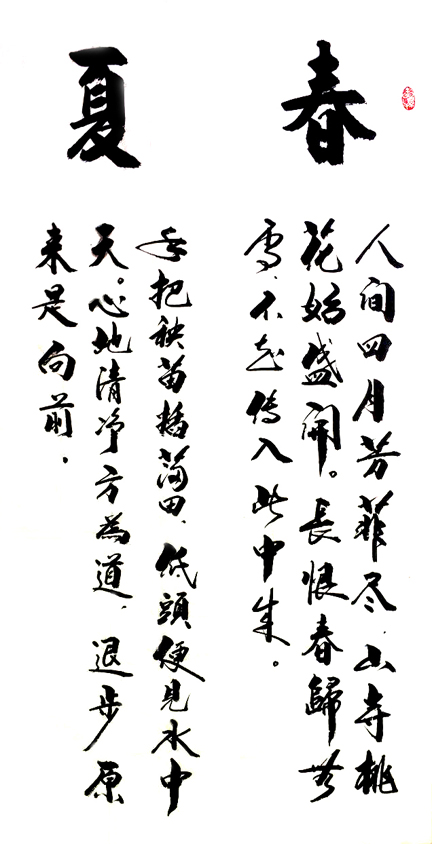 春
人间四月芳菲尽、山寺桃
花始盛開。長恨春歸無
、不知傳入此中来。
夏
手把秧苗插滿田、低頭便見水中
天。心地清净方為道、退步原
来是向前.